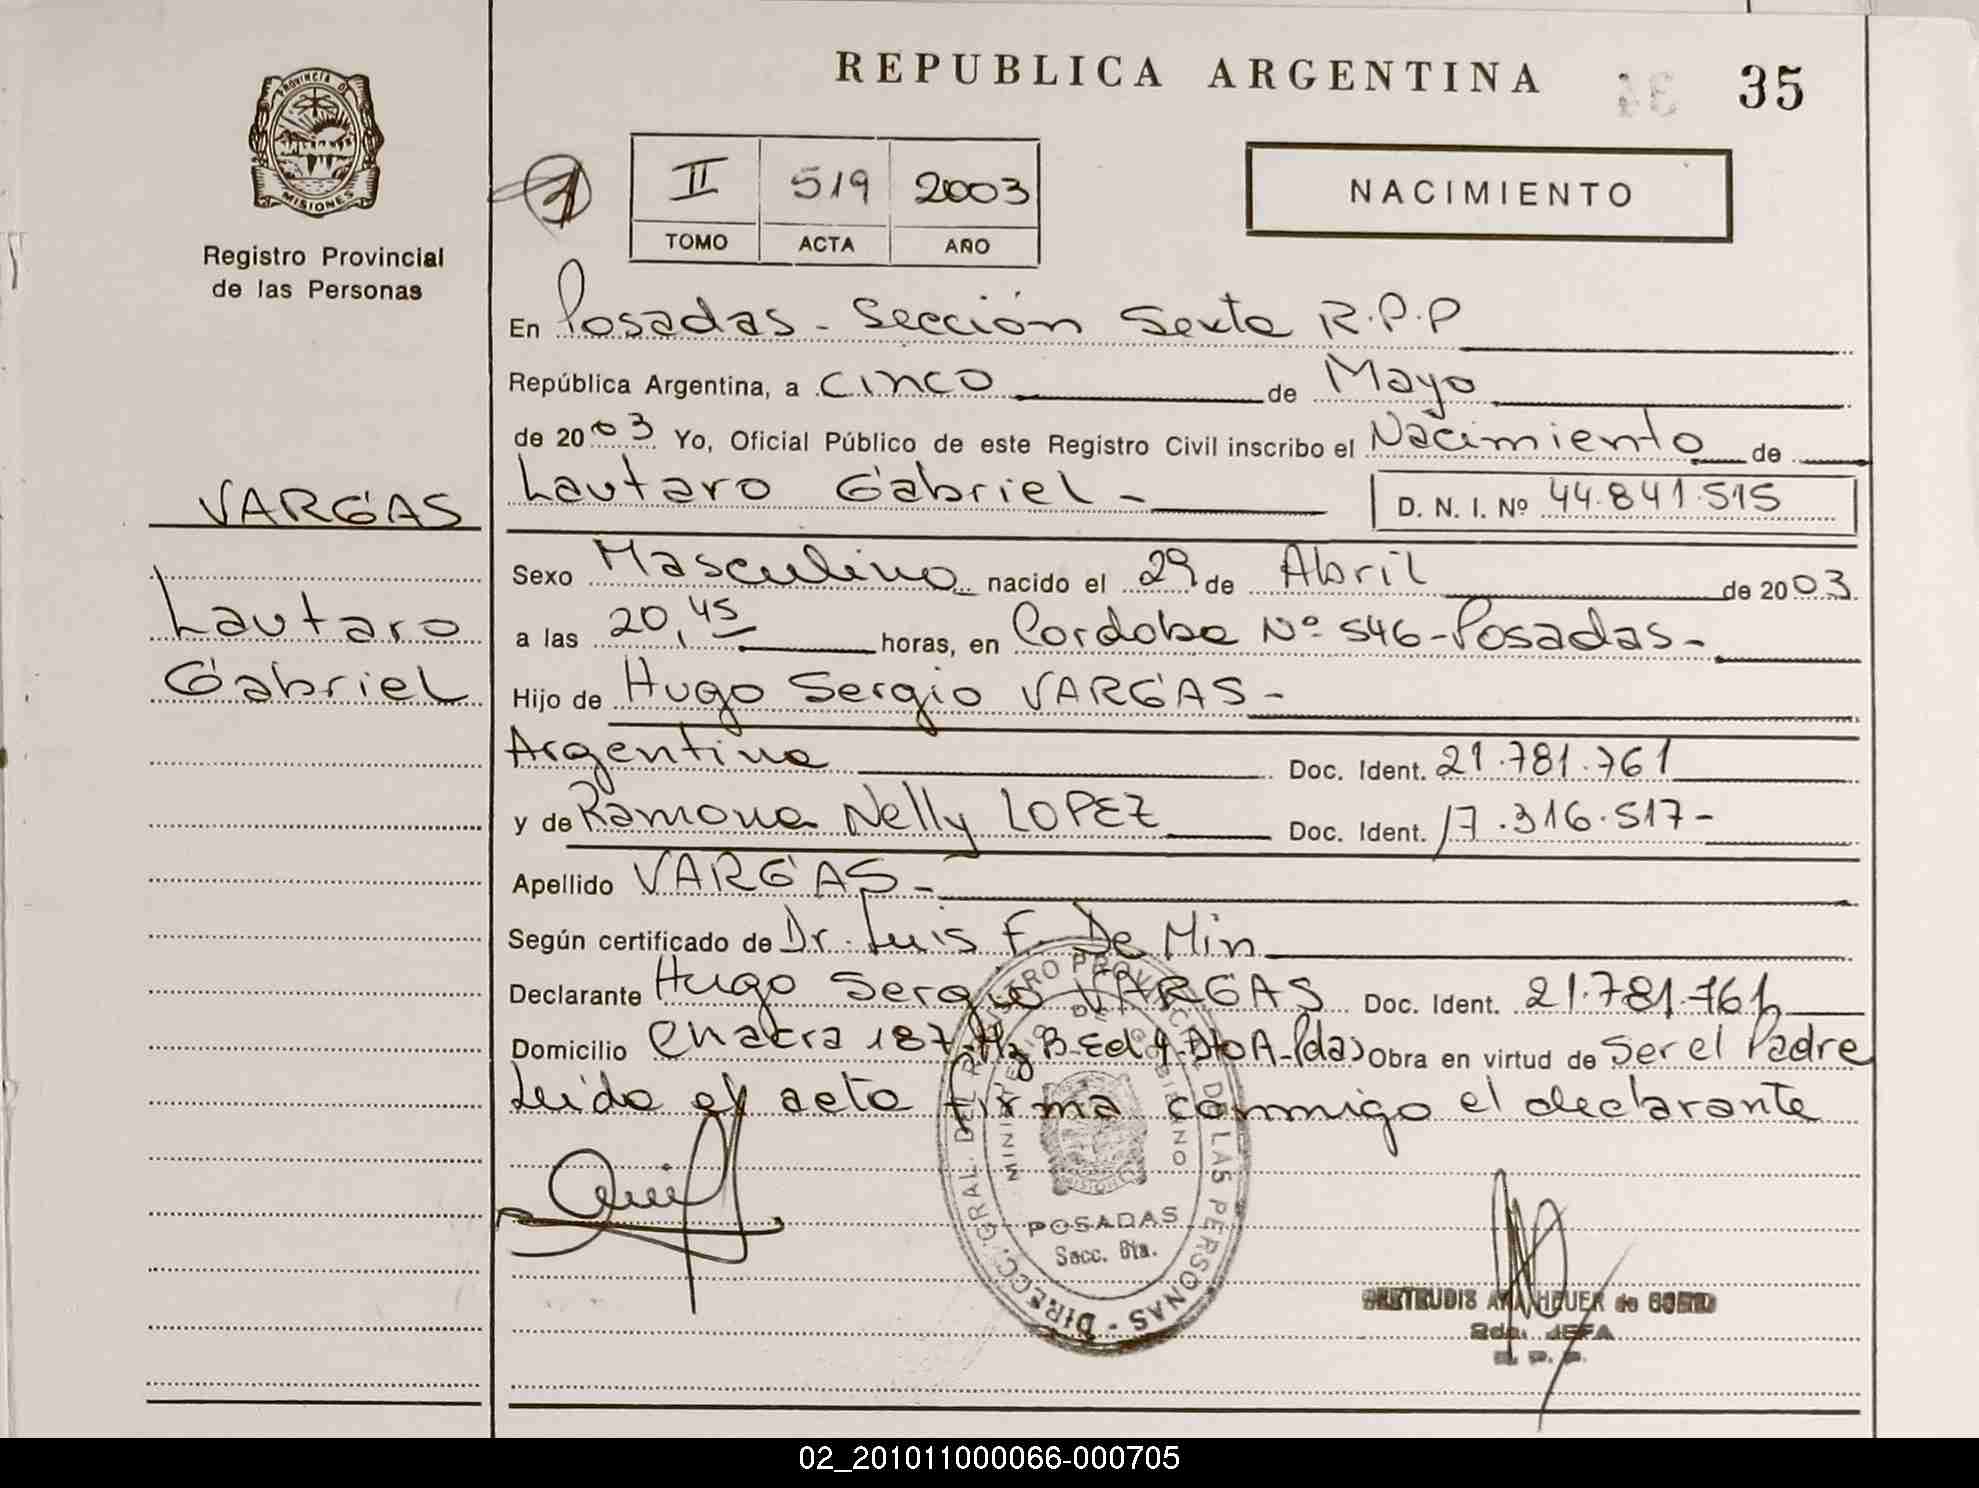 REPUBLICA ARGENTINA
35
PROVINCIA DE
MISIONES
Registro Provincial
de las Personas
II 519 2003
TOMO ACTA AÑO
NACIMIENTO
VARGAS
Lautaro
Gabriel
En Posadas - Sección Sexta R.P.P
República Argentina, a cinco de Mayo
de 2003 Yo, Oficial Público de este Registro Civil inscribo el Nacimiento de
Lautaro Gabriel - D. N. I. Nº 44.841.515
Sexo Masculino nacido el 29 de Abril de 2003
a las 20,45 horas, en Cordoba Nº 546 - Posadas -
Hijo de Hugo Sergio VARGAS -
Argentina Doc. Ident. 21.781.761
y de Ramona Nelly LOPEZ Doc. Ident. 17.316.517-
Apellido VARGAS -
Según certificado de Dr. Luis F. De Min
Declarante Hugo Sergio VARGAS Doc. Ident. 21.781.761
Domicilio Chacra 187-Mz B-Ed 9-Dto A-Pdas Obra en virtud de Ser el Padre
Leido el acto firma conmigo el declarante
DIRECC. GRAL. DEL REGISTRO PROVINCIAL DE LAS PERSONAS -
MINISTERIO DE GOBIERNO
MISIONES
POSADAS
Secc. 6ta.
GERTRUDIS ANA HEUER de
2da. JEFA
R. P. P.
02_201011000066-000705